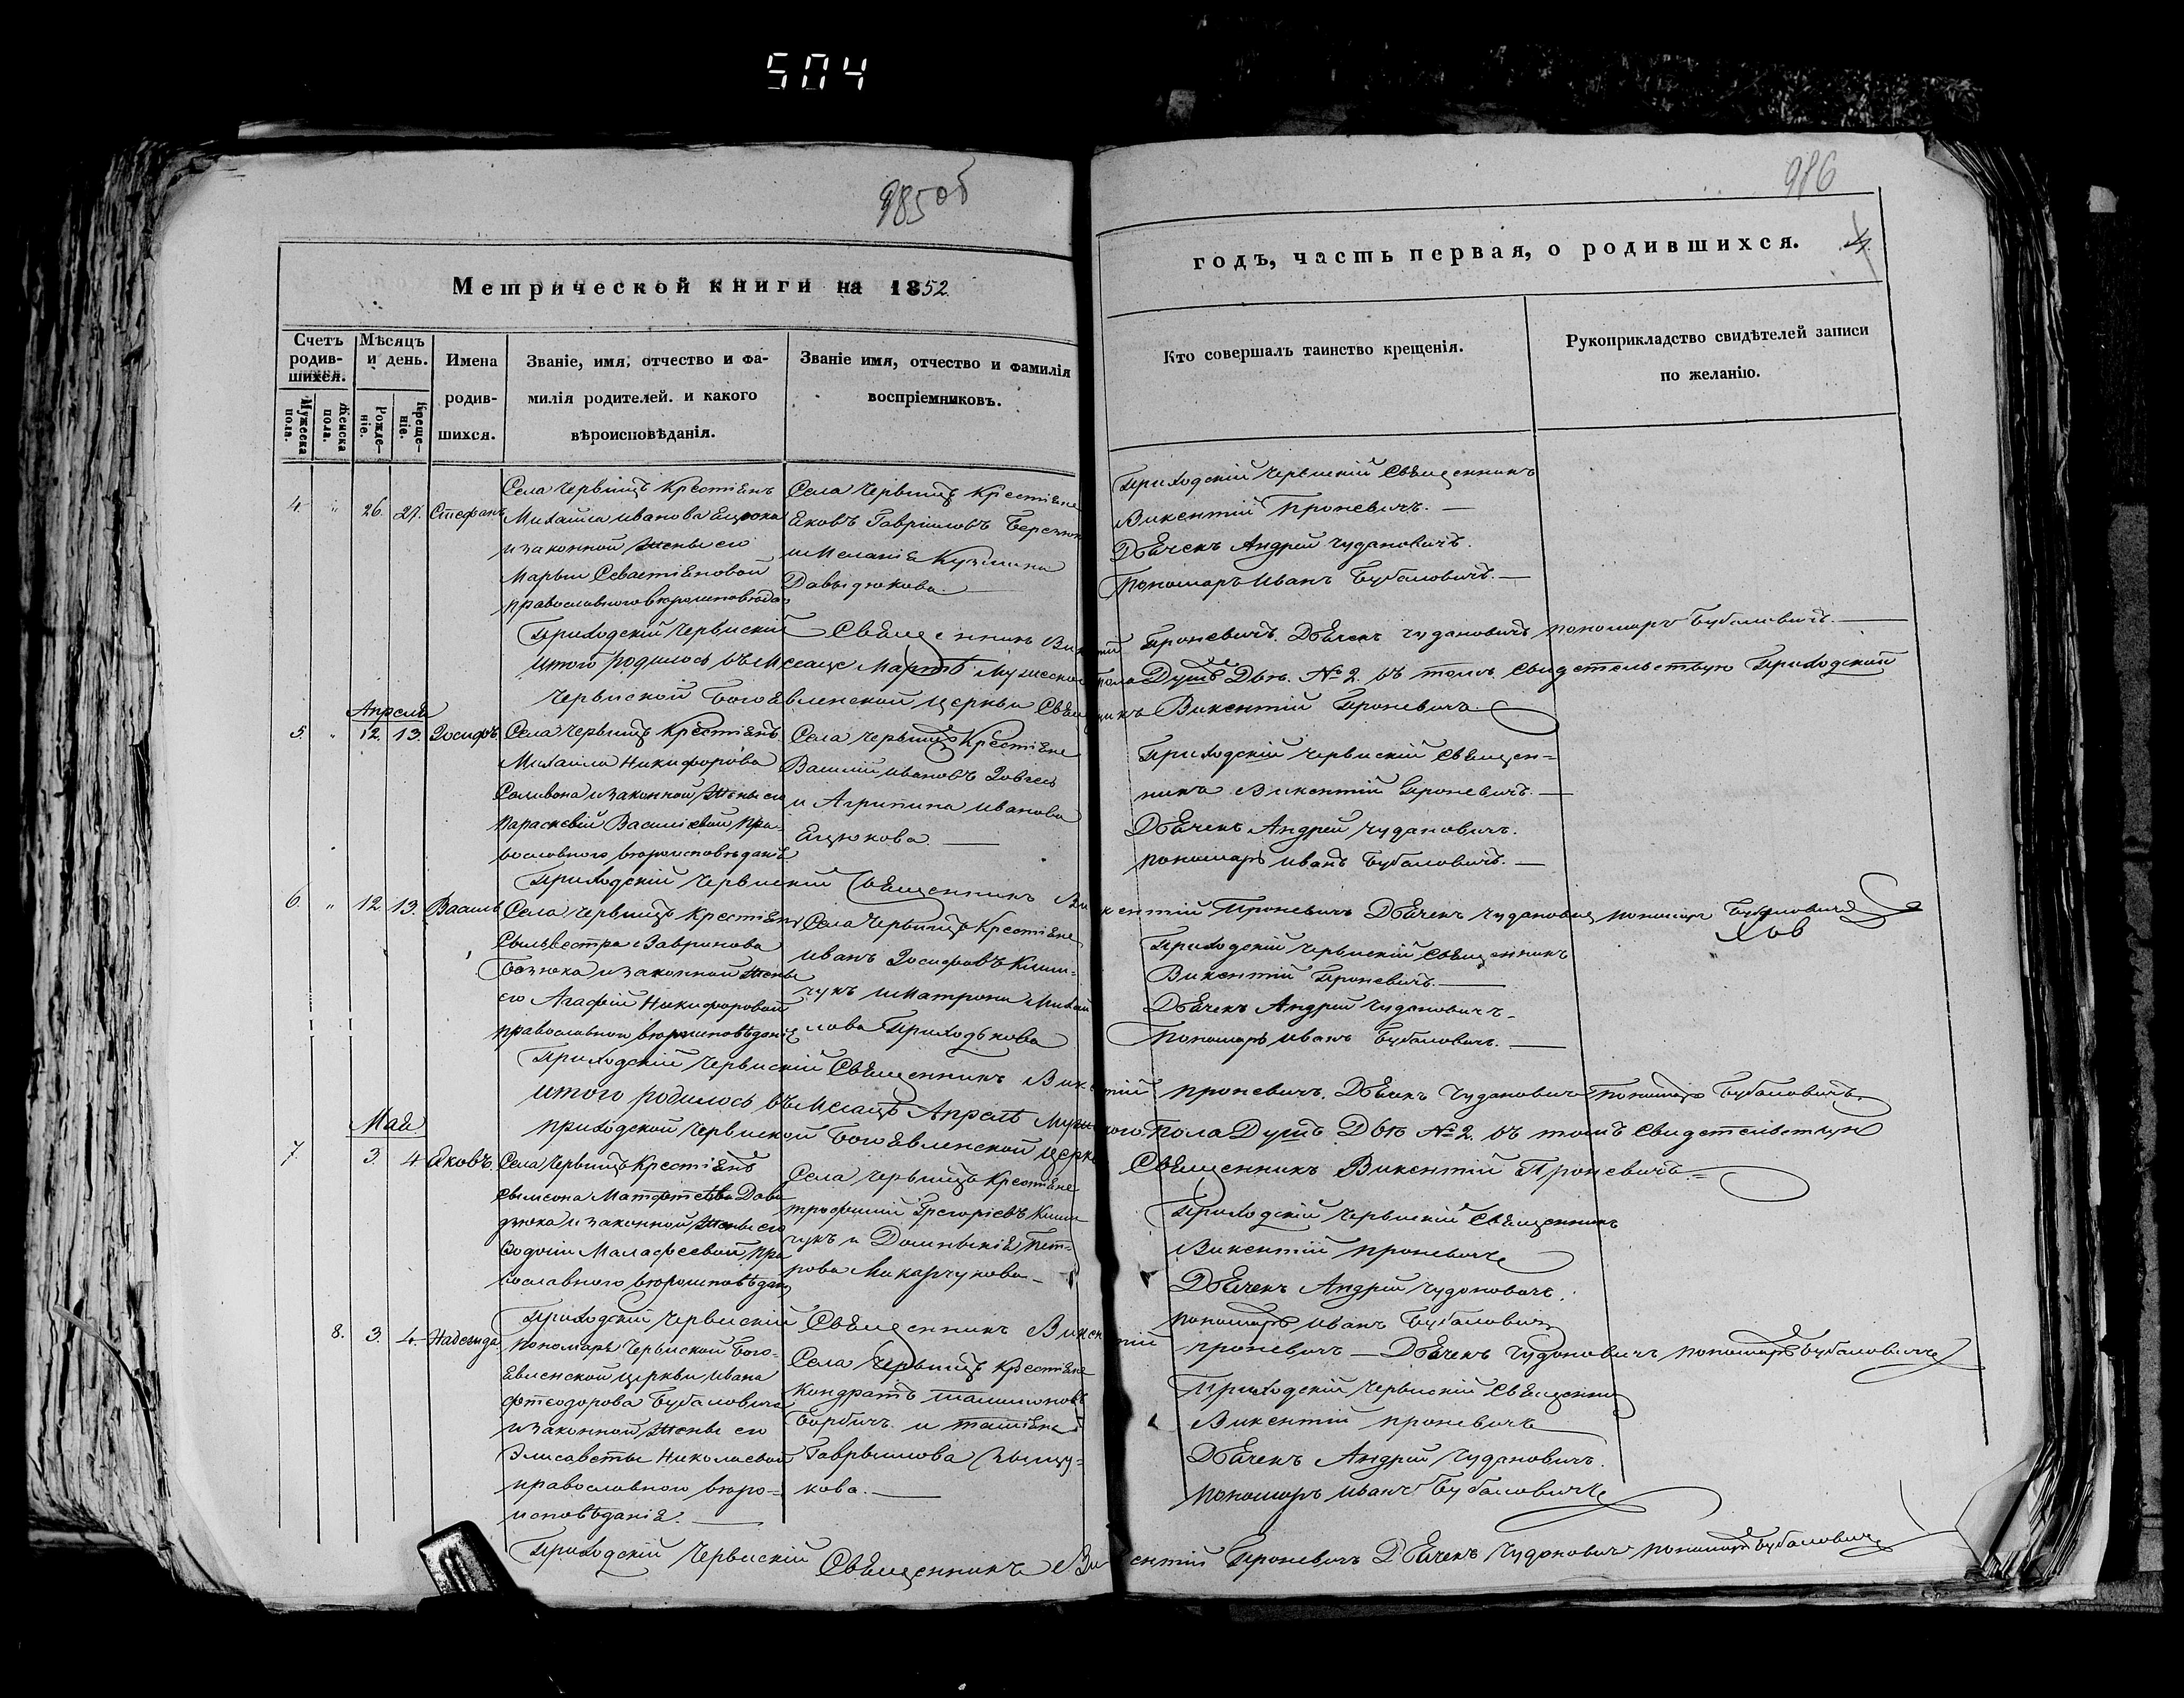 504
985 об
986
Метрической книги на 1852
годъ, часть первая, о родившихся.
4.
Счетъ родив-шихся.
Мужеска пола.
Женска пола.
Мѣсяцъ и день.
Рожде-ніе.
Креще-ніе.
Имена
родив-
шихся.
Званіе, имя, отчество и фа-
милія родителей. и какого
вѣроисповѣданія.
Званіе имя, отчество и фамилія
воспріемниковъ.
Кто совершалъ таинство крещенія.
Рукоприкладство свидѣтелей записи
по желанію.
4. " 26. 27. Стефанъ
Села Червищъ Крестіянъ
Михаила Иванова Ецюка
и законной жены его
Марыи Севастіяновой
православного вѣроисповѣда
Села Червищъ Крестіяне
Яковъ Гавріиловъ
и Меланія Кузмина
Давыдюкова. —
Приходскій Червискій Священникъ
Викентій Проневичъ. —
Дьячекъ Андрей Чудановичъ.
Пономаръ Иванъ Бубаловичъ. —
Приходскій Червискій Священникъ Викентій Проневичъ. Дьячекъ Чудановичъ Пономаръ Бубаловичъ. —
Итого родилось въ Месяце Мартѣ Мужеского пола Душъ Двѣ. № 2. въ томъ свидетельствую Приходской
Червиской Богоявленской церкви Священникъ Викентій Проневичъ
Апреля
5. " 12. 13. Іосифъ.
Села Червищъ Крестіянъ
Михаила Никифорова
Саливона и законной жены его
Параскевіи Василіевой пра-
вославного вѣроисповѣданія
Села Червищъ Крестіяне
Василій Ивановъ
и Агрипина Иванова
Ецюкова. —
Приходскій Червискій Священ-
никъ Викентій Проневичъ. —
Дьячекъ Андрей Чудановичъ.
Пономаръ Иванъ Бубаловичъ. —
Приходскій Червискій Священникъ Викентій Проневичъ Дьячекъ Чудановичъ Пономаръ Бубаловичъ
6. " 12. 13. Василъ
Села Червищъ Крестіянъ
Сыльвестра Лавринова
и законной жены
его Агафіи Никифоровой
православного вѣроисповѣданія
Села Червищъ Крестіяне
Иванъ Іосифовъ Клим-
чукъ и Матрона Михай
лова Приходькова
Приходскій Червискій Священникъ
Викентій Проневичъ. —
Дьячекъ Андрей Чудановичъ.
Пономаръ Иванъ Бубаловичъ. —
Приходскій Червискій Священникъ Викентій Проневичъ. Дьячекъ Чудановичъ Пономаръ Бубаловичъ.
Итого родилось въ Месяцѣ Апрелѣ Мужеского пола Душъ Двѣ № 2. въ томъ Свидетельствую
Приходской Червиской Богоявленской Церкви Священникъ Викентій Проневичъ. =
Май
7. 3. 4 Яковъ.
Села Червищъ Крестіянъ
Сымеона Матфеева Давы
дюка и законной жены его
Малафеевой пра
вославного вѣроисповѣдан
Села Червищъ Крестіяне
Трофимій Грегоріевъ Клим
чукъ и Домникія Пет-
рова Макарчукова —
Приходскій Червискій Священникъ
Викентій Проневичъ
Дьячекъ Андрей Чудоновичъ.
Пономаръ Иванъ Бубаловичъ
Приходскій Червискій Священникъ Викентій Проневичъ — Дьячекъ Чудоновичъ Пономаръ Бубаловичъ
8. 3. 4. Надежда
Пономаря Червиской Бого-
явленской церкви Ивана
Фтеодорова Бубаловича
и законной жены его
Элисаветы Николаевой
православного вѣро-
исповѣданія. —
Села Червищъ Крестіяне
Кондратъ
и Татіяна
Гаврыилова
кова. —
Приходскій Червискій Священникъ
Викентій Проневичъ
Дьячекъ Андрей Чудановичъ.
Пономаръ Иванъ Бубаловичъ
Приходскій Червискій Священникъ Викентій Проневичъ Дьячекъ Чудоновичъ Пономаръ Бубаловичъ